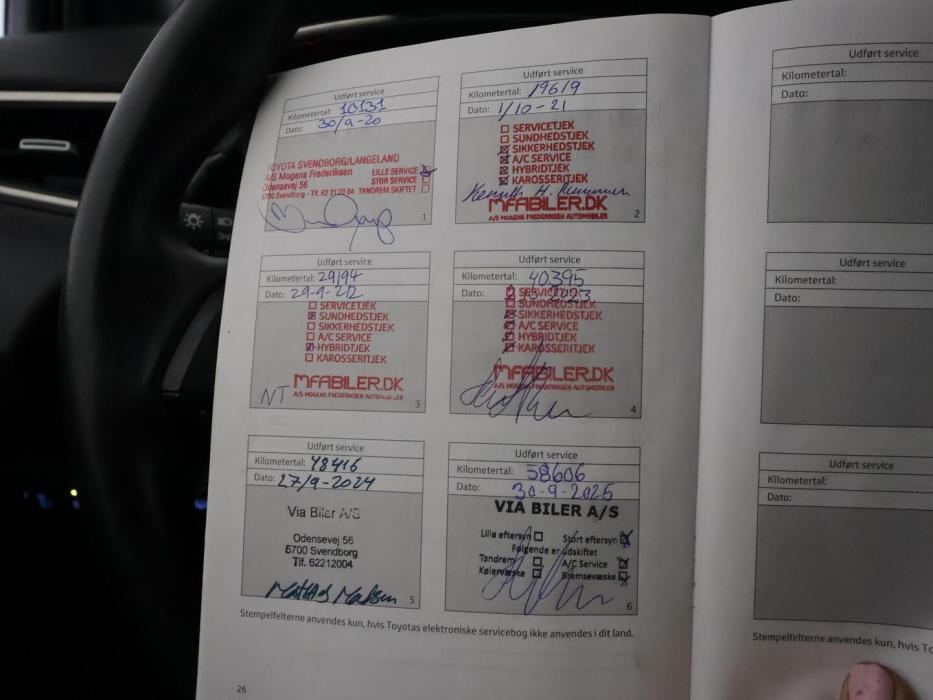 Udført service
Kilometertal: 10131
Dato: 30/9-20
TOYOTA SVENDBORG/LANGELAND
A/S Mogens Frederiksen LILLE SERVICE
Odensevej 56 STOR SERVICE
5700 Svendborg - Tlf. 62 21 20 04 TANDREM SKIFTET
1
Udført service
Kilometertal: 19619
Dato: 1/10-21
SERVICETJEK
SUNDHEDSTJEK
SIKKERHEDSTJEK
A/C SERVICE
HYBRIDTJEK
KAROSSERITJEK
MFABILER.DK
A/S MOGENS FREDERIKSEN AUTOMOBILER
2
Udført service
Kilometertal: 29194
Dato: 29-9-22
SERVICETJEK
SUNDHEDSTJEK
SIKKERHEDSTJEK
A/C SERVICE
HYBRIDTJEK
KAROSSERITJEK
NT
MFABILER.DK
A/S MOGENS FREDERIKSEN AUTOMOBILER
3
Udført service
Kilometertal: 40395
Dato:
SERVICETJEK
SUNDHEDSTJEK
SIKKERHEDSTJEK
A/C SERVICE
HYBRIDTJEK
KAROSSERITJEK
MFABILER.DK
A/S MOGENS FREDERIKSEN AUTOMOBILER
4
Udført service
Kilometertal: 48416
Dato: 27/9-2024
Via Biler A/S
Odensevej 56
5700 Svendborg
Tlf. 62212004
5
Udført service
Kilometertal: 58606
Dato: 30-9-2025
VIA BILER A/S
Lille eftersyn Stort eftersyn
Følgende er udskiftet
Tandrem A/C Service
Kølervæske Bremsevæske
6
Stempelfelterne anvendes kun, hvis Toyotas elektroniske servicebog ikke anvendes i dit land.
26
Udført service
Kilometertal:
Dato:
Udført service
Kilometertal:
Dato:
Udført service
Kilometertal:
Dato:
Stempelfelterne anvendes kun, hvis To